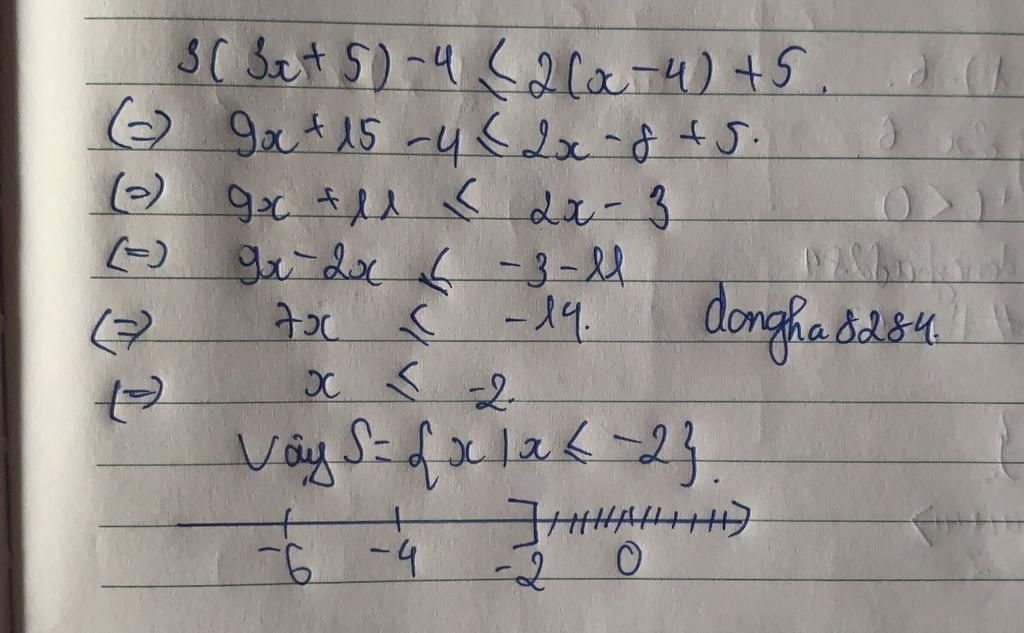 3(3x+5)-4 ≤ 2(x-4)+5.
(=) 9x+15-4 ≤ 2x-8+5.
(=) 9x+11 ≤ 2x-3
(=) 9x-2x ≤ -3-11
(=) 7x ≤ -14. dongha8284.
(=) x ≤ -2.
Vậy S={x|x ≤ -2}.
-6 -4 -2 0